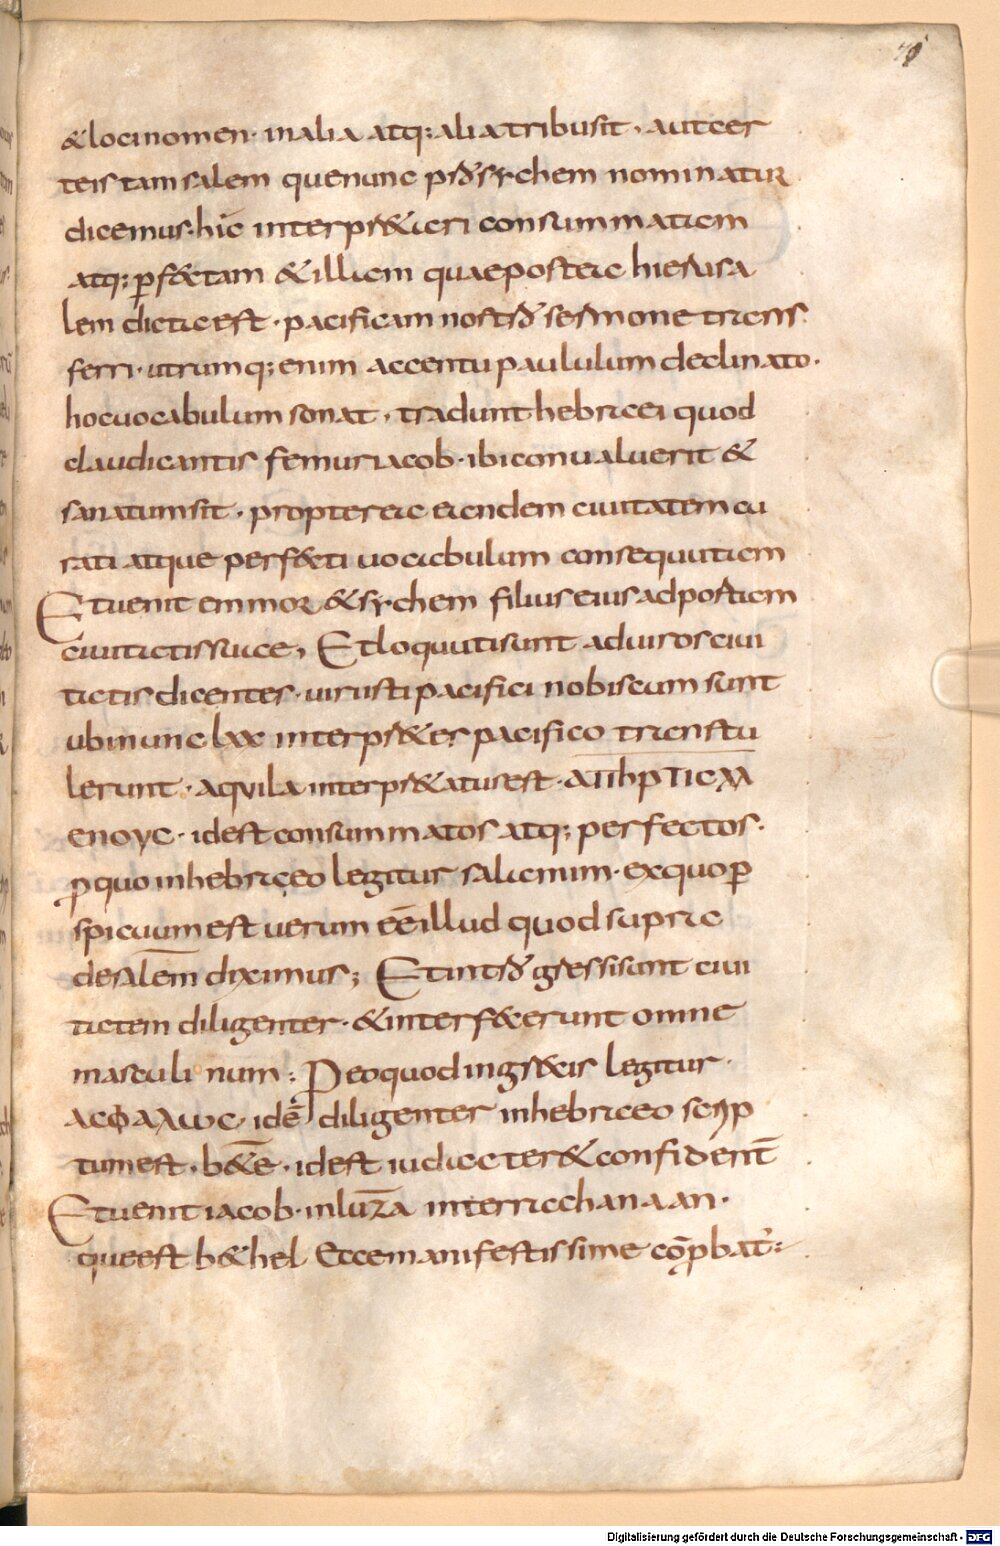 71
&loci nomen· in alia atq: alia tribus sit, aut cer
te istam salem quae nunc pro sychem nominatur
dicemus· hic interpr&ari consummatam
atq; ꝑf&tam &illam quae postea hierusa
lem dicta est· pacificam nostro sermone trans
ferri· utrumq; enim accentu paululum declinato·
hoc uocabulum sonat, tradunt hebraei quod
claudicantis femur iacob· ibi conualuerit &
sanatum sit, propterea eandem ciuitatem cu
rati atque perf&ti uocabulum consequutam
Et uenit emmor &sychem filius eius ad portam
ciuitatis suae, Et loquuti sunt ad uiros ciui
tatis dicentes· uiri isti pacifici nobiscum sunt
ubi nunc lxx interpr&es pacifico transtu
lerunt· aquila interpr&atus est· ΑΠΗΡΤΙCΜ
ΕΝΟΥC· id est consummatos atq; perfectos·
ꝓ quo in hebraeo legitur salamim· ex quo ꝑ
spicuum est uerum eē illud quod supra
de salem diximus; Et intro gressi sunt ciui
tatem diligenter· &interf&erunt omne
masculinum: Pro eo quod in gr&cis legitur·
ΑCΦΑΛѠC, idē diligenter in hebraeo scrip
tum est, b&e· id est iudacter &confidenT
Et uenit iacob· in luza in terra chanaan·
quae est b&hel Ecce manifestissime cōꝓbat᷑:
Digitalisierung gefördert durch die Deutsche Forschungsgemeinschaft - DFG